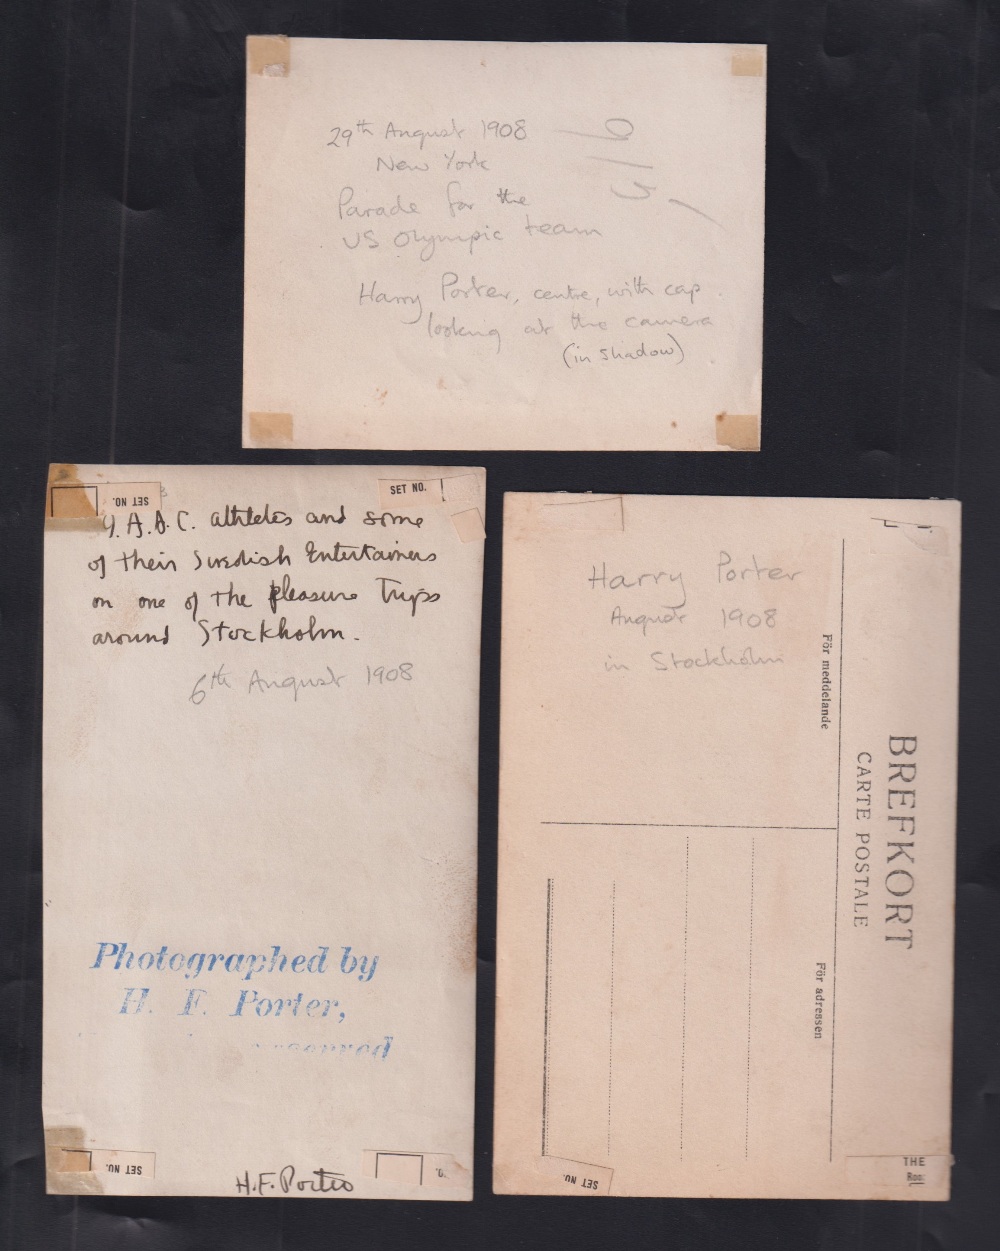 29th August 1908
New York
Parade for the
US Olympic team
Harry Porter, centre, with cap
looking at the camera
(in shadow)
SET NO.
SET NO.
Y.A.A.C. athletes and some
of their Swedish Entertainers
on one of the pleasure Trips
around Stockholm.
6th August 1908
Photographed by
H. F. Porter,
reserved
SET NO.
H.F. Porter
Harry Porter
August 1908
in Stockholm
För meddelande
BREFKORT
CARTE POSTALE
För adressen
SET NO.
THE